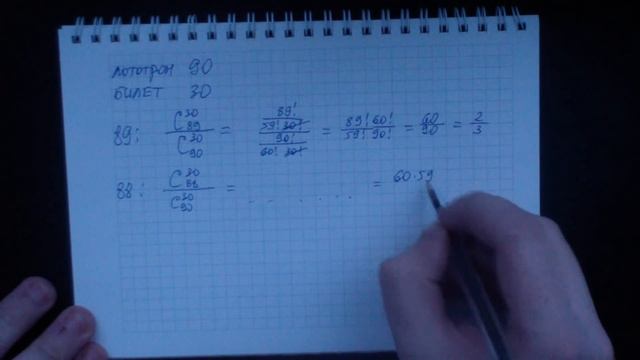 лототрон 90
БИЛЕТ 30
89: C₈₉³⁰ / C₉₀³⁰ = (89! / (59! 30!)) / (90! / (60! 30!)) = 89! 60! / 59! 90! = 60/90 = 2/3
88: C₈₈³⁰ / C₉₀³⁰ = . . . . . . = 60·59